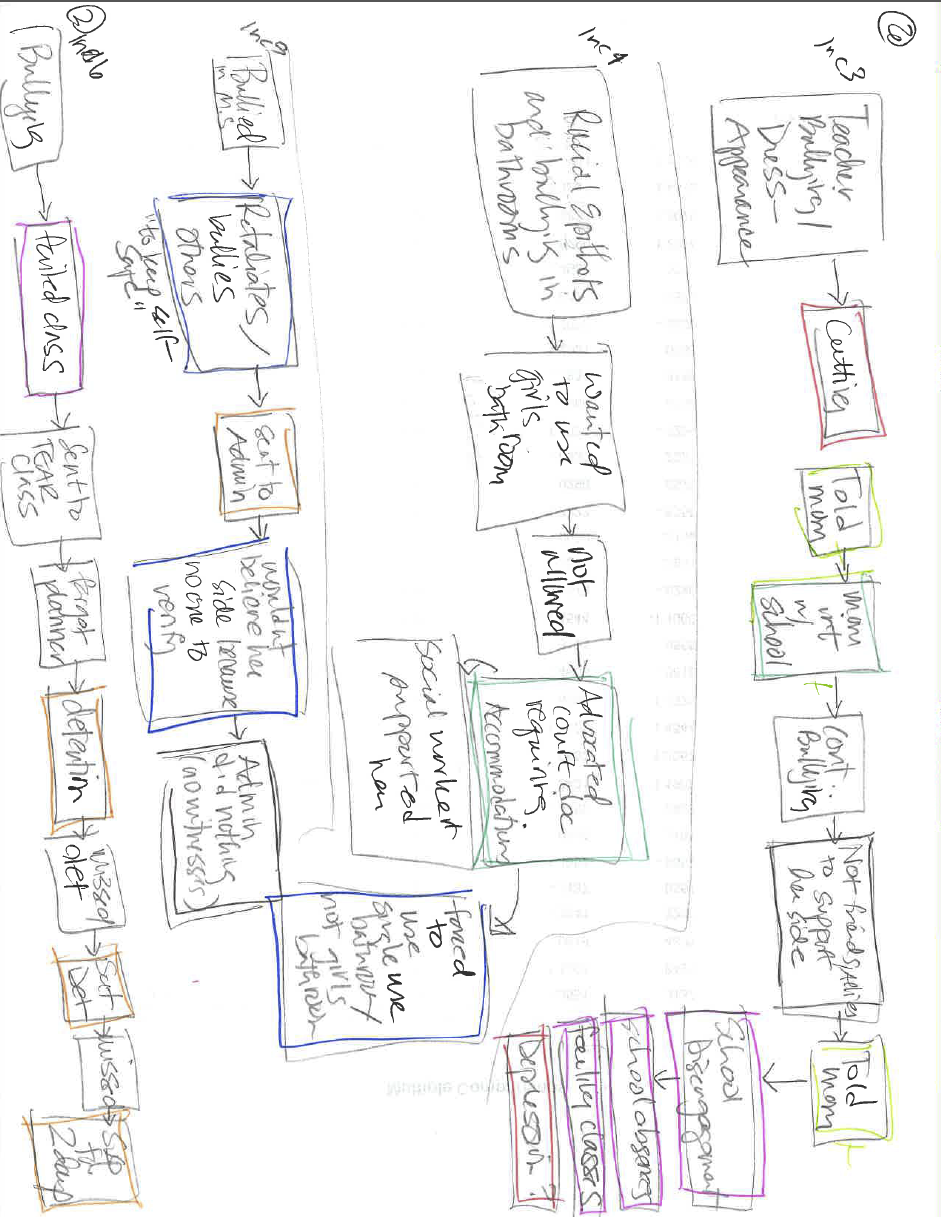 2a
Inc 3
Teacher
Bullying/
Dress-
Appearance
Cutting
Told
mom
mom
int
w/
School
Cont
Bullying
Not friends/Allies
to support
her side
Told
mom
School
Disengagement
School absences
failing classes
Depression?
Inc 4
Racial Epithets
and bullying in
bathrooms
wanted
to use
girls
bathroom
not
allowed
Advocated
court doc
requiring
Accommodation
Social worker
supported
her
forced
to
use
single use
bathroom/
not girls
bathroom
Inc 9
Bullied
in M.S
Retaliates/
bullies
others
"to keep self-
safe"
sent to
Admin
wouldnt
believe her
side because
no one to
verify
Admin
did nothing
(no witnesses)
Bullying
failed class
Sent to
TEAR
Class
forgot
planner
detention
missed
det
Sat
Det
missed
2 days